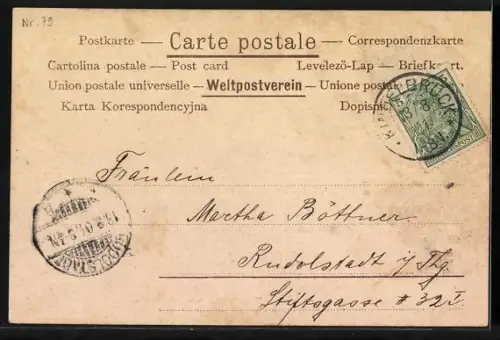 Nr. 79
Postkarte — Carte postale — Correspondenzkarte
Cartolina postale — Post card Levelezö-Lap — Briefkaart.
Union postale universelle — Weltpostverein — Unione postale
Karta Korespondencyjna Dopisnic
KINDELBRÜCK
Fräulein
Martha Böttner
Rudolstadt i/Thg.
Stiftsgasse # 32 I
RUDOLSTADT